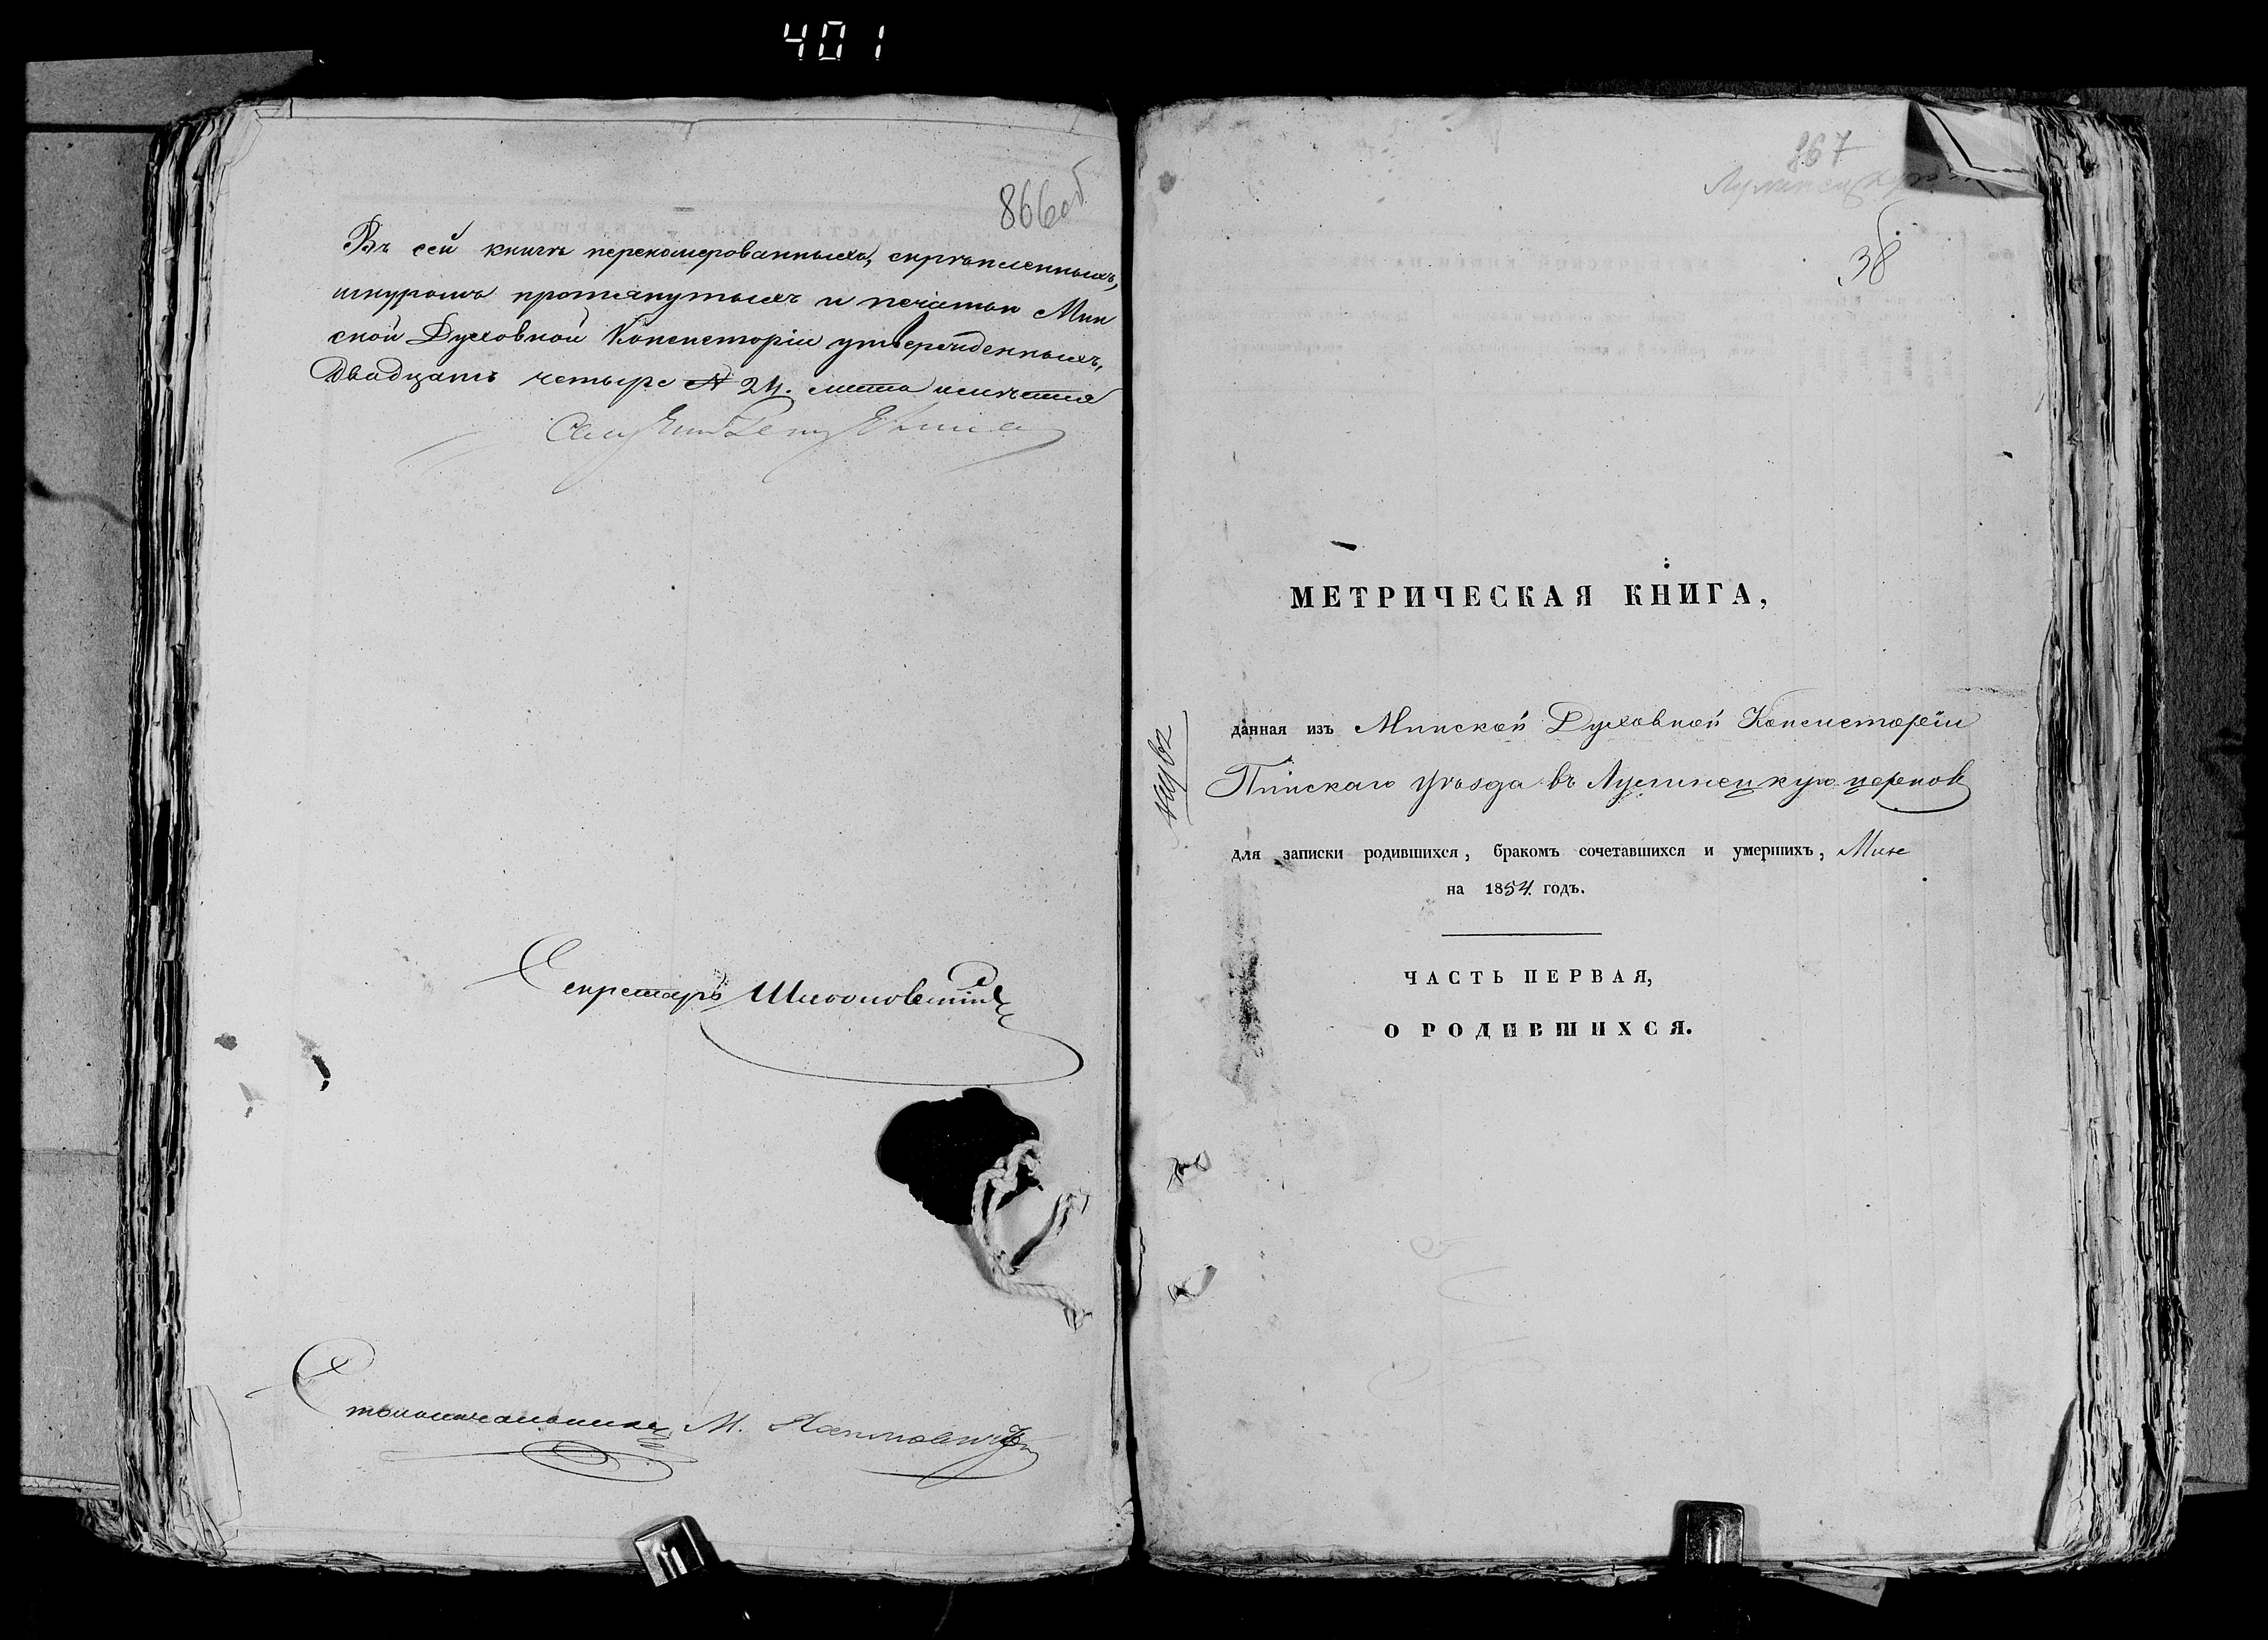 401
866об
Въ сей книги перекомерованныхъ, скрѣпленныхъ,
шнуромъ протянутыхъ и печатью Мин
ской Духовной Консисторіи утвержденныхъ,
Двадцать четыре № 24. листа
Секретарь
Столоначальникъ М.
867
38
МЕТРИЧЕСКАЯ КНИГА,
данная изъ Минской Духовной Консисторіи
Пинскаго уѣзда въ Лунинецкую церковь
для записки родившихся, бракомъ сочетавшихся и умершихъ,
на 1854 годъ.
ЧАСТЬ ПЕРВАЯ,
О РОДИВШИХСЯ.